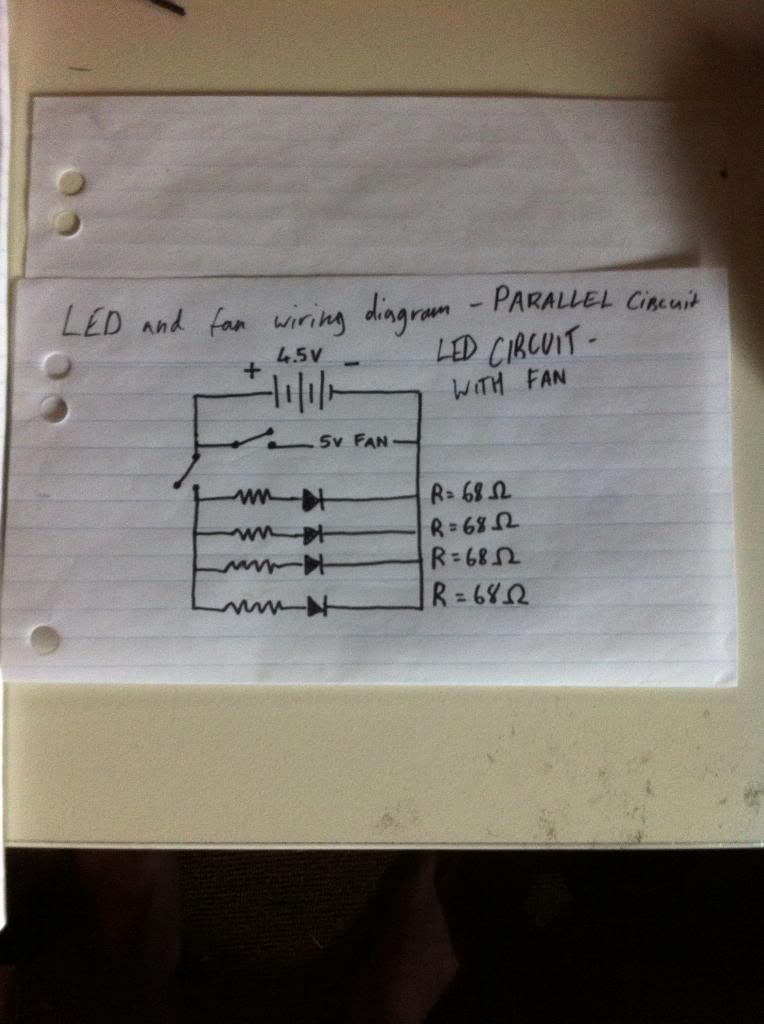 LED and fan wiring diagram - PARALLEL circuit
LED CIRCUIT -
WITH FAN
4.5V
+ -
5V FAN
R = 68Ω
R = 68Ω
R = 68Ω
R = 68Ω